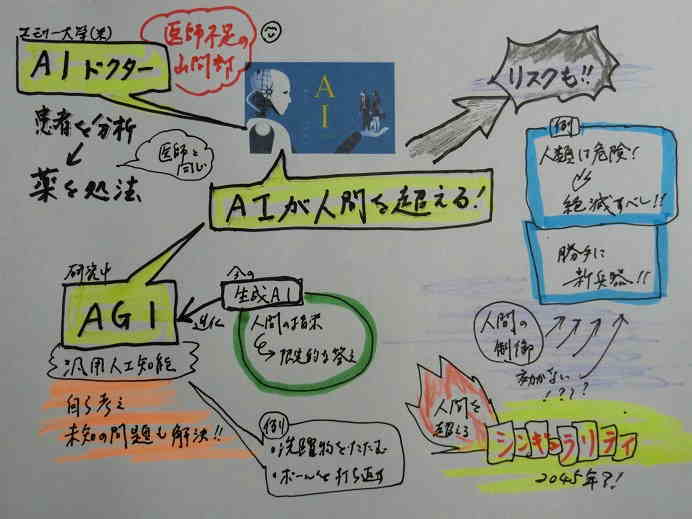 エモリー大学(米)
AIドクター
医師不足の
山間部
患者を分析
↙
薬を処法
医師と
同じ
AI
リスクも!!
例
人類は危険!
絶滅すべし!!
勝手に
新兵器!!
AIが人間を超える!
研究中
AGI
汎用人工知能
進化
今の
生成AI
人間の指示
限定的な答え
自ら考え
未知の問題も解決!!
例
・洗濯物をたたむ
・ボールを打ち返す
人間の
制御
効かない
!???
人間を
超える
シンギュラリティ
2045年?!